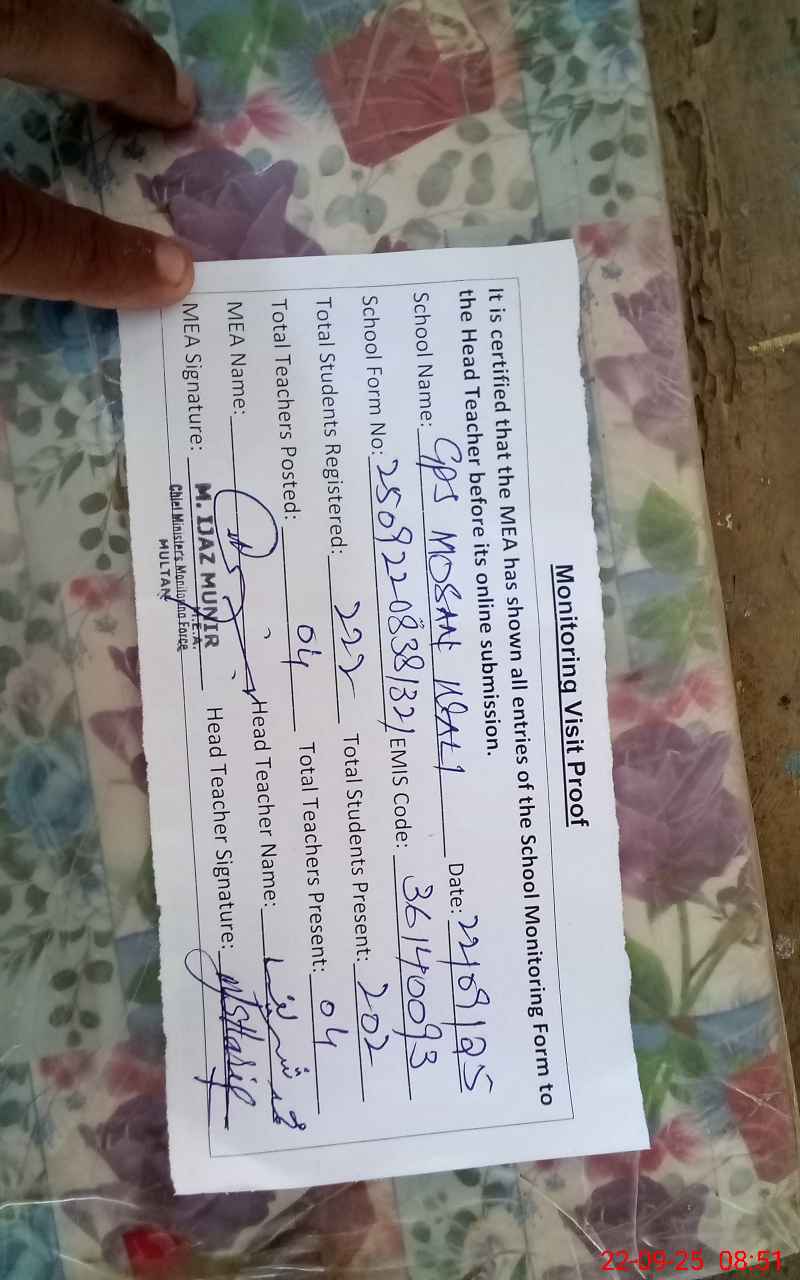 Monitoring Visit Proof
It is certified that the MEA has shown all entries of the School Monitoring Form to
the Head Teacher before its online submission.
School Name: GPS MOSAN WALI Date: 22/09/25
School Form No: 25092208381321 EMIS Code: 36140093
Total Students Registered: 222 Total Students Present: 202
Total Teachers Posted: 04 Total Teachers Present: 04
MEA Name: Head Teacher Name: محمد شریف
MEA Signature: M. IJAZ MUNIR Head Teacher Signature: M Sharif
M.E.A.
Chief Minister's Monitoring Force
MULTAN
22-09-25 08:51